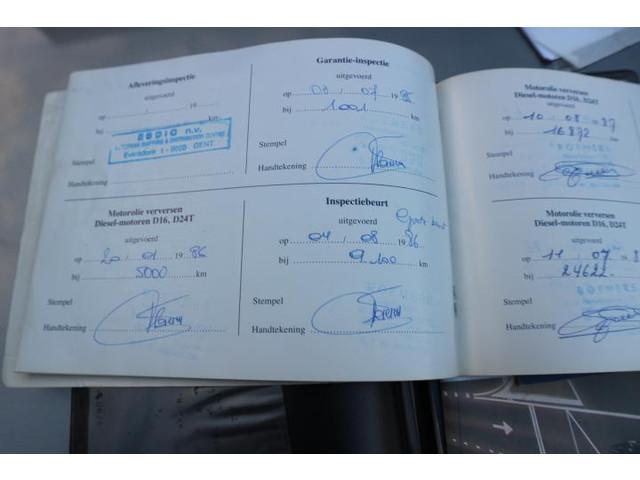 Afleveringsinspectie
uitgevoerd
op 19
bij km
EDDIC n.v.
Eversdonk 1 - 9020 GENT
Stempel
Handtekening
Garantie-inspectie
uitgevoerd
op 07 1986
bij 1001 km
Stempel
Handtekening
Motorolie verversen
Diesel-motoren D16, D24T
uitgevoerd
op 20 01 1986
bij 5000 km
Stempel
Handtekening
Inspectiebeurt
uitgevoerd
op 04 08 1986
bij 9.100 km
Stempel
Handtekening
Motorolie verversen
Diesel-motoren D16, D24T
uitgevoerd
op 10 08 = 87
bij 16872
Stempel
Handtekening
Motorolie verversen
Diesel-motoren D16, D24T
uitgevoerd
op 11 07 = 8
bij 24622
Stempel
Handtekening